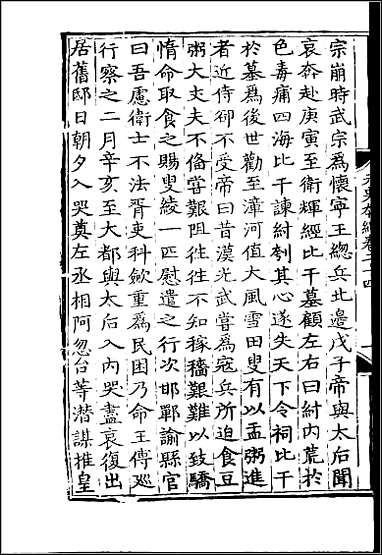 宗崩時武宗爲懷寧王總兵北邊戊子帝與太后聞
哀奔赴庚寅至衛輝經比干墓顧左右曰紂内荒於
色毒痡四海比干諫紂刳其心遂失天下令祠比干
於墓爲後世勸至漳河值大風雪田叟有以盂粥進
者近侍卻不受帝曰昔漢光武嘗爲寇兵所迫食豆
粥大丈夫不備嘗艱阻往往不知稼穡艱難以致驕
惰命取食之賜叟綾一匹慰遣之行次邯鄲諭縣官
曰吾慮衛士不法胥吏科歛重爲民困乃命王傅廵
行察之二月辛亥至大都與太后入内哭盡哀復出
居舊邸日朝夕入哭奠左丞相阿忽台等潛謀推皇